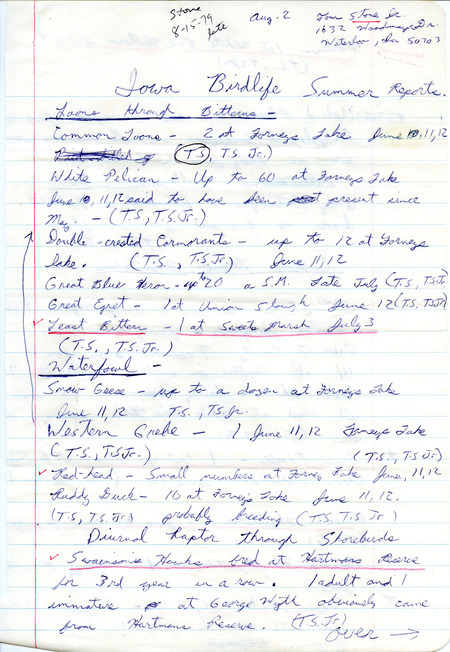 Stone
8-15-79
late
Aug. 2
Tom Stone Jr.
1632 Woodmayr Dr.
Waterloo, Ia 50703
Iowa Birdlife Summer Reports.
Loons through Bitterns -
Common Loons - 2 at Forneys Lake June 10, 11, 12
(T.S), T.S Jr.)
White Pelican - Up to 60 at Forneys Lake
June 10, 11, 12 said to have been present since
May. - (T.S., T.S. Jr.)
Double-crested Cormorants - up to 12 at Forneys
lake. (T.S., T.S. Jr.) June 11, 12
Great Blue Heron - up to 20 a S.M. Late July (T.S., T.S. Jr.)
Great Egret - 1 at Union Slough June 12 (T.S, T.S. Jr)
Least Bittern - 1 at Sweets Marsh July 3
(T.S., T.S. Jr.)
Waterfowl -
Snow Geese - up to a dozen at Forneys Lake
June 11, 12 T.S., T.S. Jr.
Western Grebe - 1 June 11, 12 Forneys Lake
(T.S., T.S. Jr.) (T.S., T.S. Jr)
Red-head - Small numbers at Forney Lake June, 11, 12
Ruddy Duck - 10 at Forneys Lake June 11, 12.
(T.S, T.S. Jr.) probably breeding (T.S. T.S. Jr.)
Diurnal Raptor through Shorebirds
Swainsons Hawks bred at Hartmans Reserve
for 3rd year in a row. 1 adult and 1
immature - at George Wyth obviously came
from Hartmans Reserve. (T.S. Jr)
over →